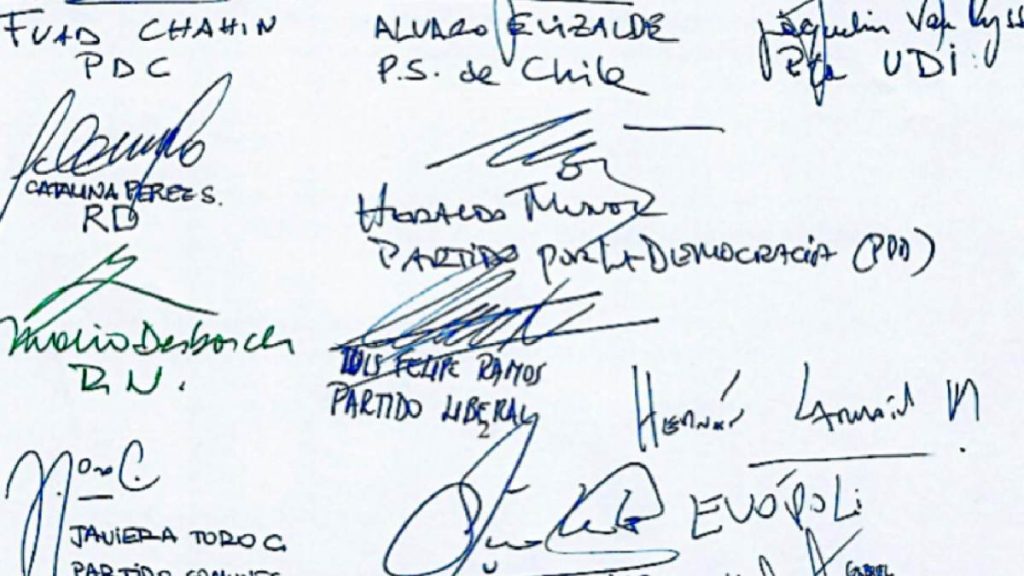 FUAD CHAHIN
PDC
ALVARO ELIZALDE
P.S. de Chile
Jaquelin Van Ryss
Pdta UDI
CATALINA PEREZ S.
RD
HERALDO MUÑOZ
PARTIDO POR LA DEMOCRACIA (PPD)
Mario Desbordes
R.N.
LUIS FELIPE RAMOS
PARTIDO LIBERAL
HERNÁN LARRAÍN M.
EVÓPOLI
JAVIERA TORO C
PARTIDO COMUNES
GABRIEL